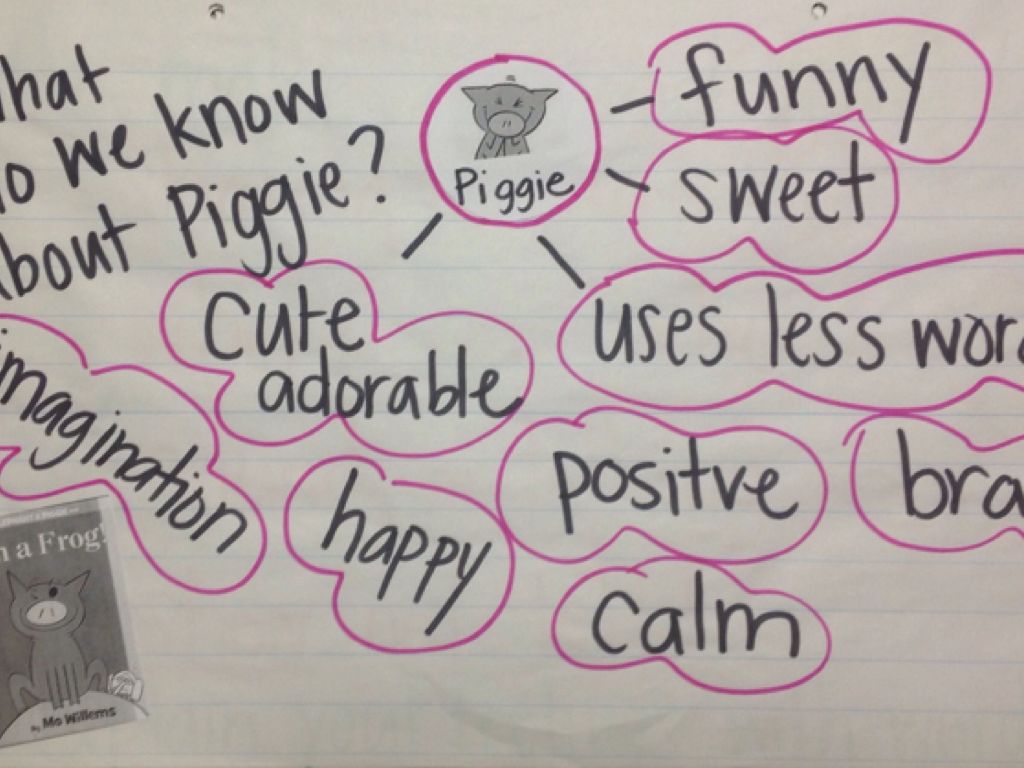 hat
o we know
bout Piggie?
Piggie
funny
sweet
cute
adorable
uses less wor
imagination
happy
positve
bra
calm
m a Frog!
By Mo Willems